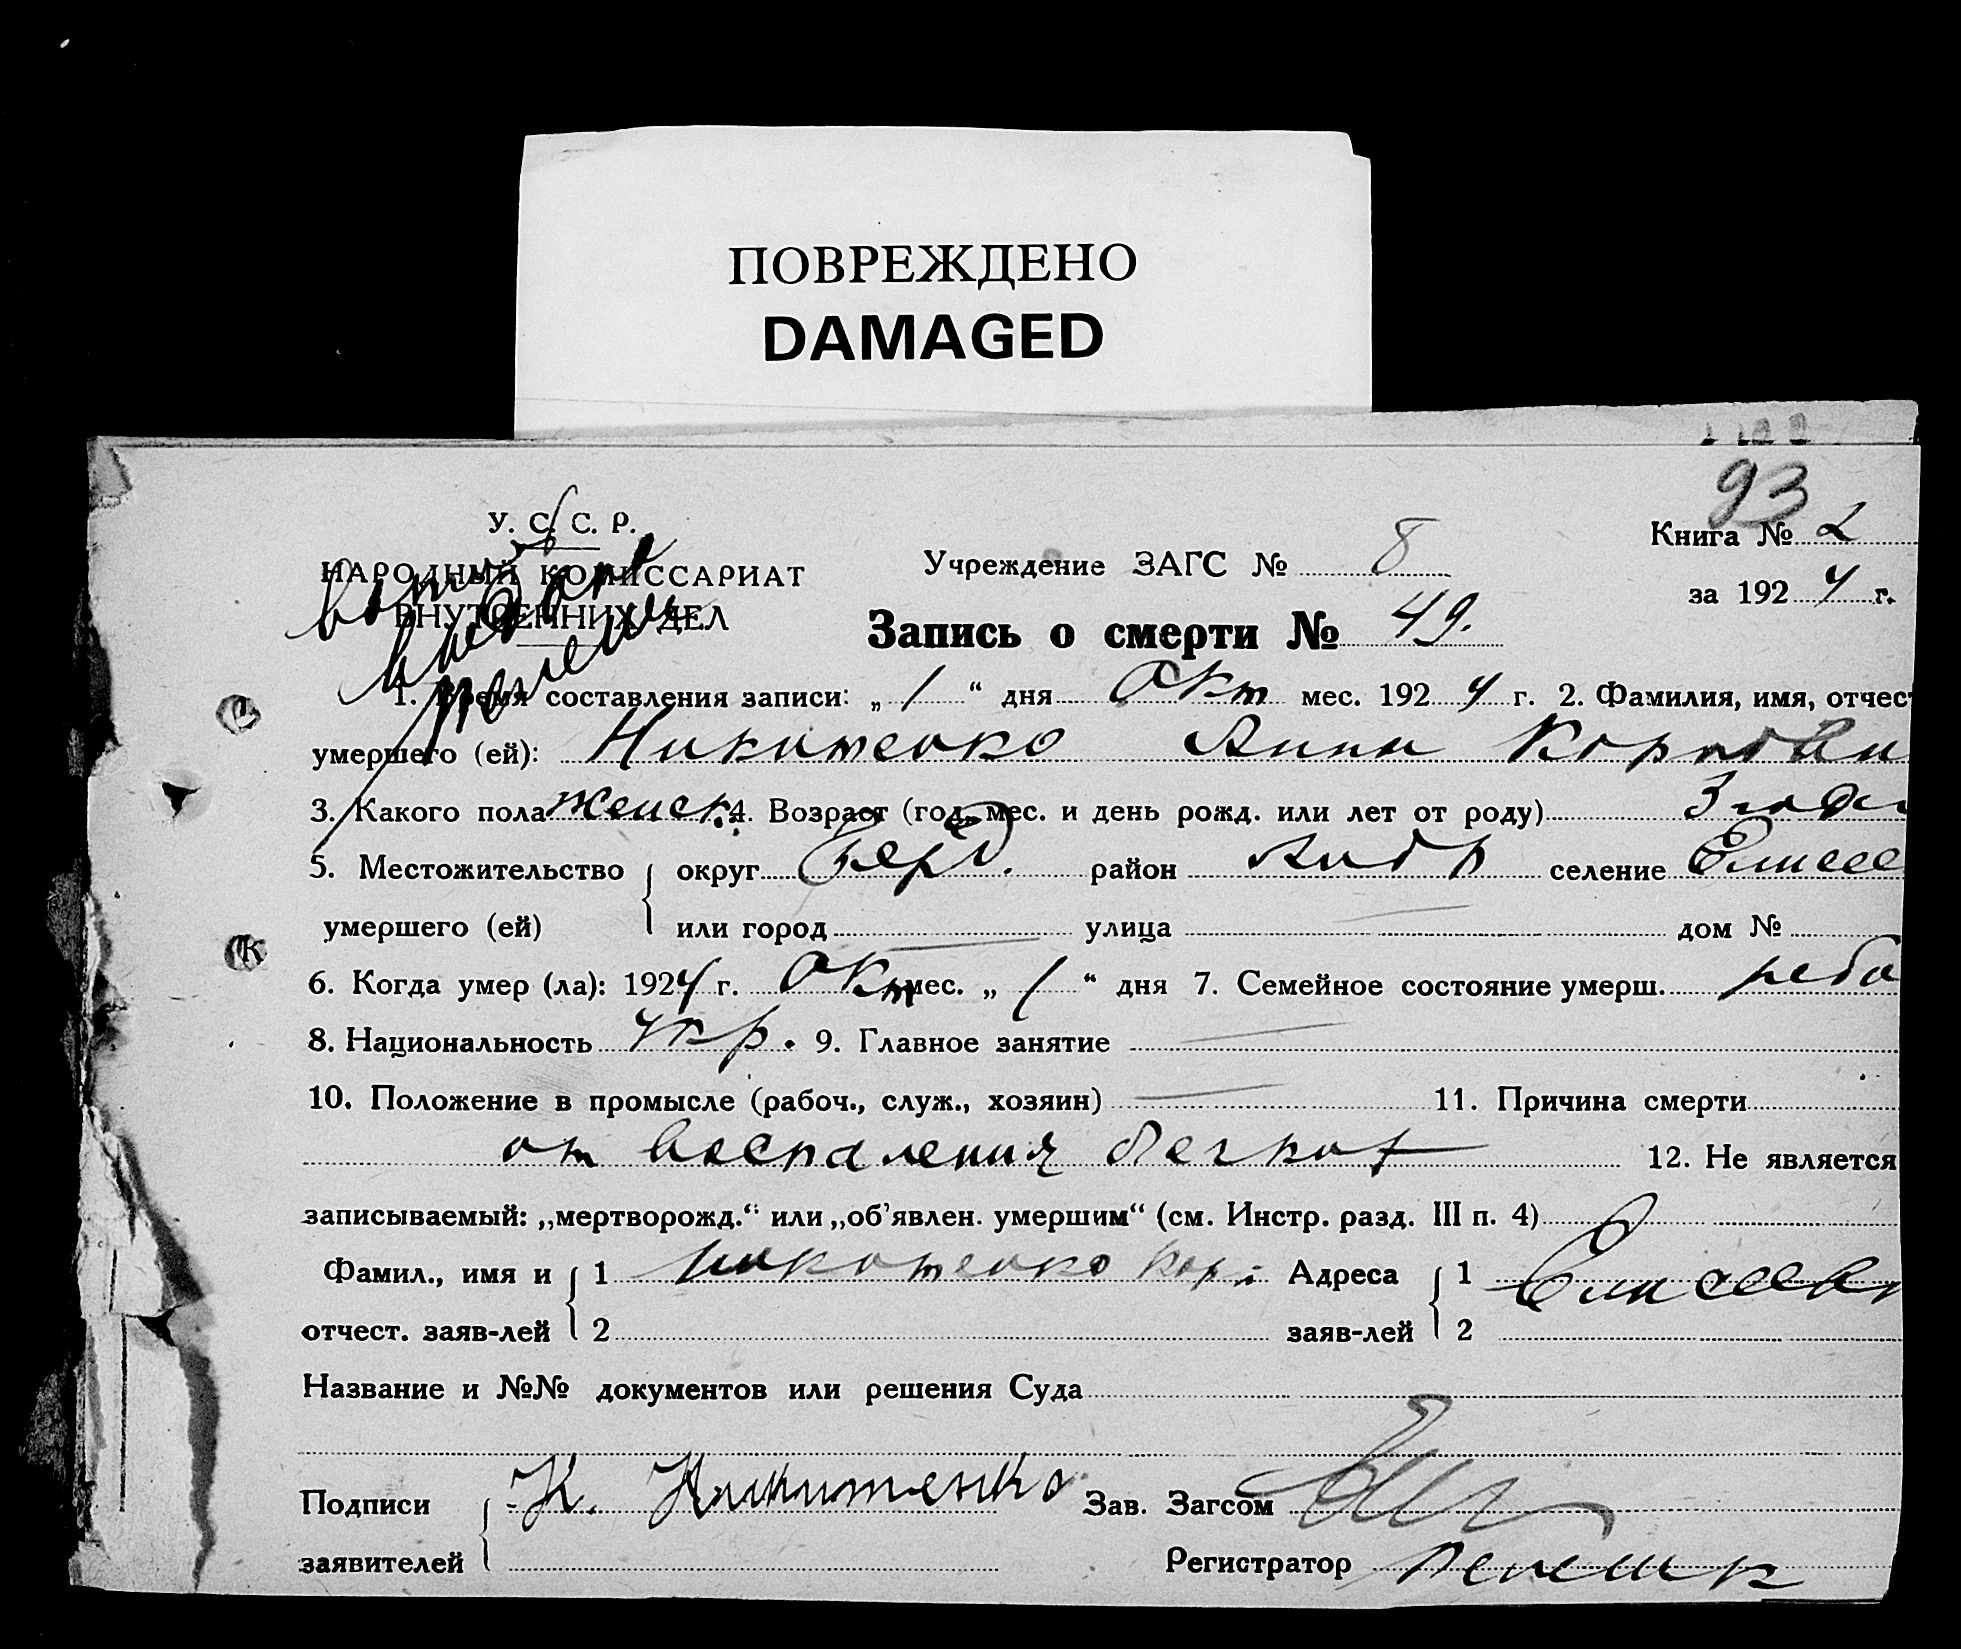 ПОВРЕЖДЕНО
DAMAGED
93
У. С. С. Р.
НАРОДНЫЙ КОМИССАРИАТ
ВНУТРЕННИХ ДЕЛ
Учреждение ЗАГС № 8
Книга № 2
за 1924 г.
Запись о смерти № 49.
1. Время составления записи: „1“ дня Окт мес. 1924 г. 2. Фамилия, имя, отчест
умершего (ей): Никитенко Анны Карповн
3. Какого пола женск. 4. Возраст (год, мес. и день рожд. или лет от роду) 3 года
5. Местожительство округ Берд. район Андр селение Елисее
умершего (ей) или город улица дом №
6. Когда умер (ла): 1924 г. Окт мес. „1“ дня 7. Семейное состояние умерш. ребе
8. Национальность укр. 9. Главное занятие
10. Положение в промысле (рабоч., служ., хозяин) 11. Причина смерти
от воспаления легких 12. Не является
записываемый: „мертворожд.“ или „об’явлен. умершим“ (см. Инстр. разд. III п. 4)
Фамил., имя и 1 Никитенко Кар. Адреса 1 Елисеевк
отчест. заяв-лей 2 заяв-лей 2
Название и №№ документов или решения Суда
Подписи К. Никитенко Зав. Загсом
заявителей Регистратор